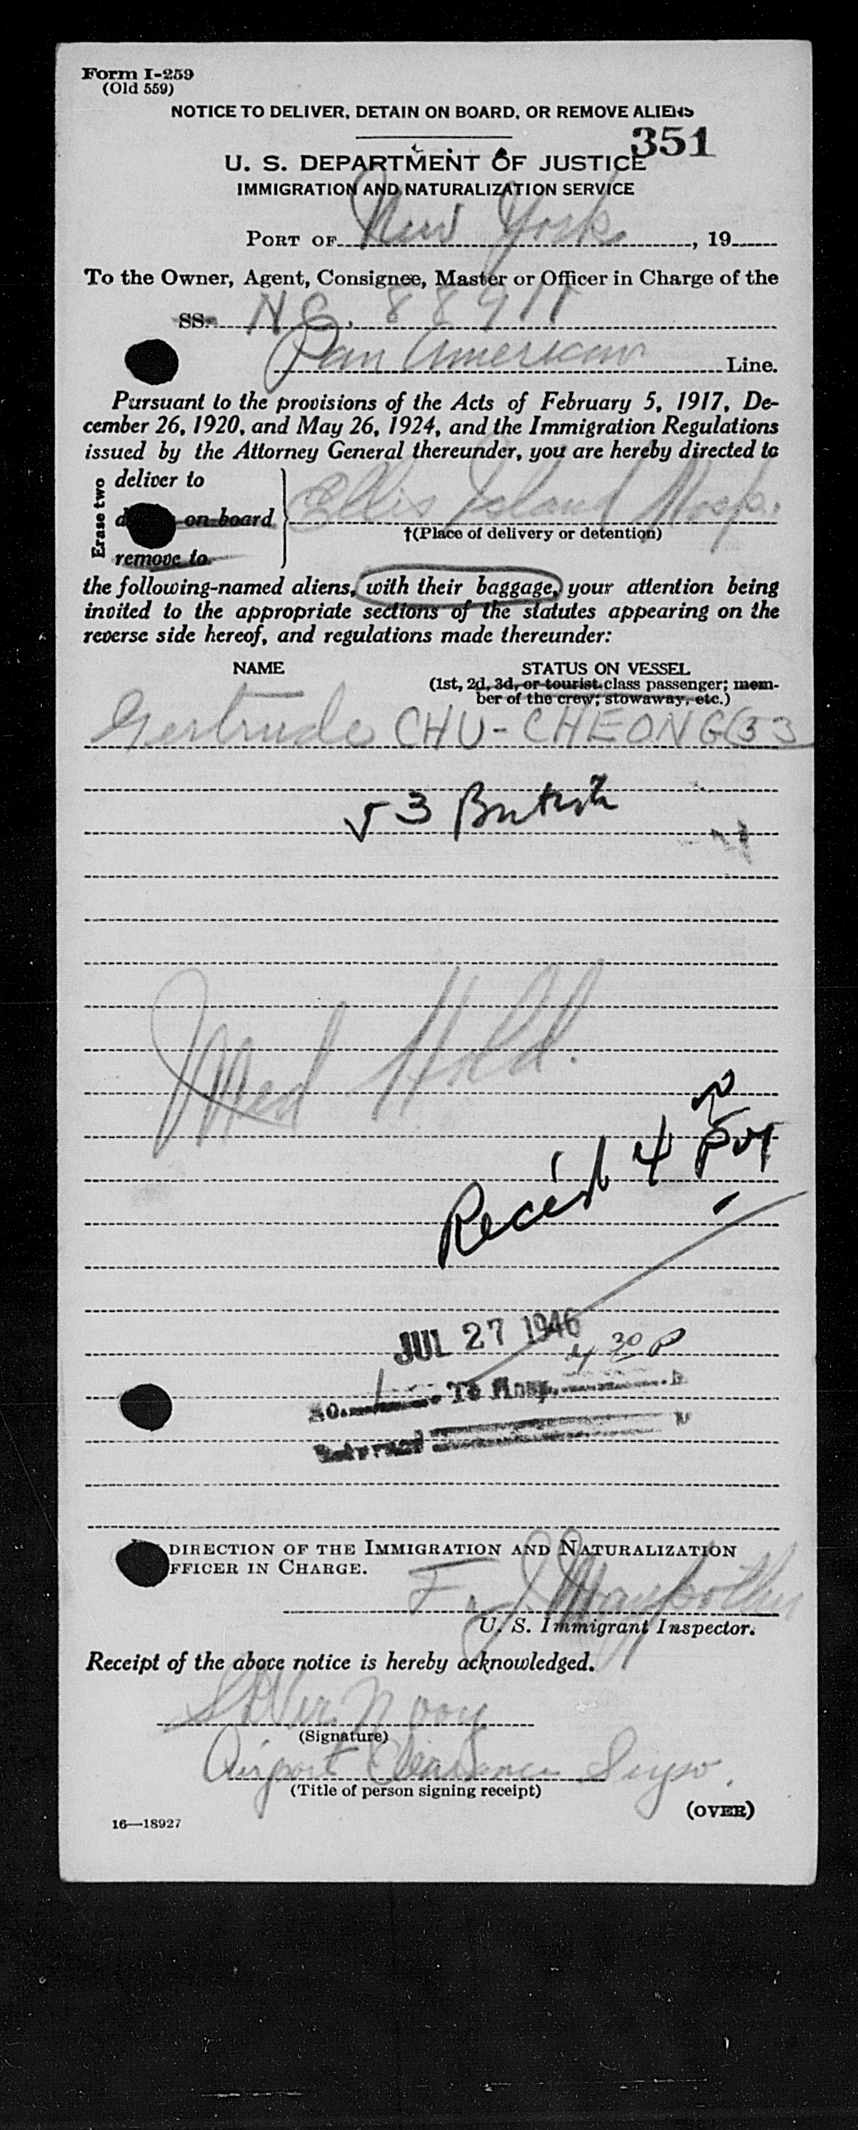 Form I-259
(Old 559)
NOTICE TO DELIVER, DETAIN ON BOARD, OR REMOVE ALIENS
351
U. S. DEPARTMENT OF JUSTICE
IMMIGRATION AND NATURALIZATION SERVICE
PORT OF New York, 19
To the Owner, Agent, Consignee, Master or Officer in Charge of the
SS. NC. 88911
Pan American Line.
Pursuant to the provisions of the Acts of February 5, 1917, De-
cember 26, 1920, and May 26, 1924, and the Immigration Regulations
issued by the Attorney General thereunder, you are hereby directed to
Erase two
deliver to
on board
remove to
Ellis Island Hosp.
†(Place of delivery or detention)
the following-named aliens, with their baggage, your attention being
invited to the appropriate sections of the statutes appearing on the
reverse side hereof, and regulations made thereunder:
NAME STATUS ON VESSEL
(1st, 2d, 3d, or tourist class passenger; mem-
ber of the crew; stowaway, etc.)
Gertrude CHU-CHEONG (53
53 British
Med Hold.
Rec'd 4
JUL 27 1946
4 30 P
No. 1 To Hosp.
Returned
DIRECTION OF THE IMMIGRATION AND NATURALIZATION
FFICER IN CHARGE.
F. J.
U. S. Immigrant Inspector.
Receipt of the above notice is hereby acknowledged.
(Signature)
Airport Clearance Supv.
(Title of person signing receipt)
(OVER)
16—18927